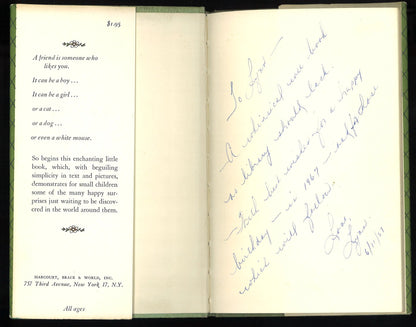 $1.95
A friend is someone who
likes you.
It can be a boy...
It can be a girl...
or a cat...
or a dog...
or even a white mouse.
So begins this enchanting little
book, which, with beguiling
simplicity in text and pictures,
demonstrates for small children
some of the many happy sur-
prises just waiting to be discov-
ered in the world around them.
HARCOURT, BRACE & WORLD, INC.
757 Third Avenue, New York 17, N.Y.
All ages
To Lynn —
A whimsical wee book
no library should lack.
— And best wishes for a happy
birthday — in 1967 — and for those
which will follow.
Love